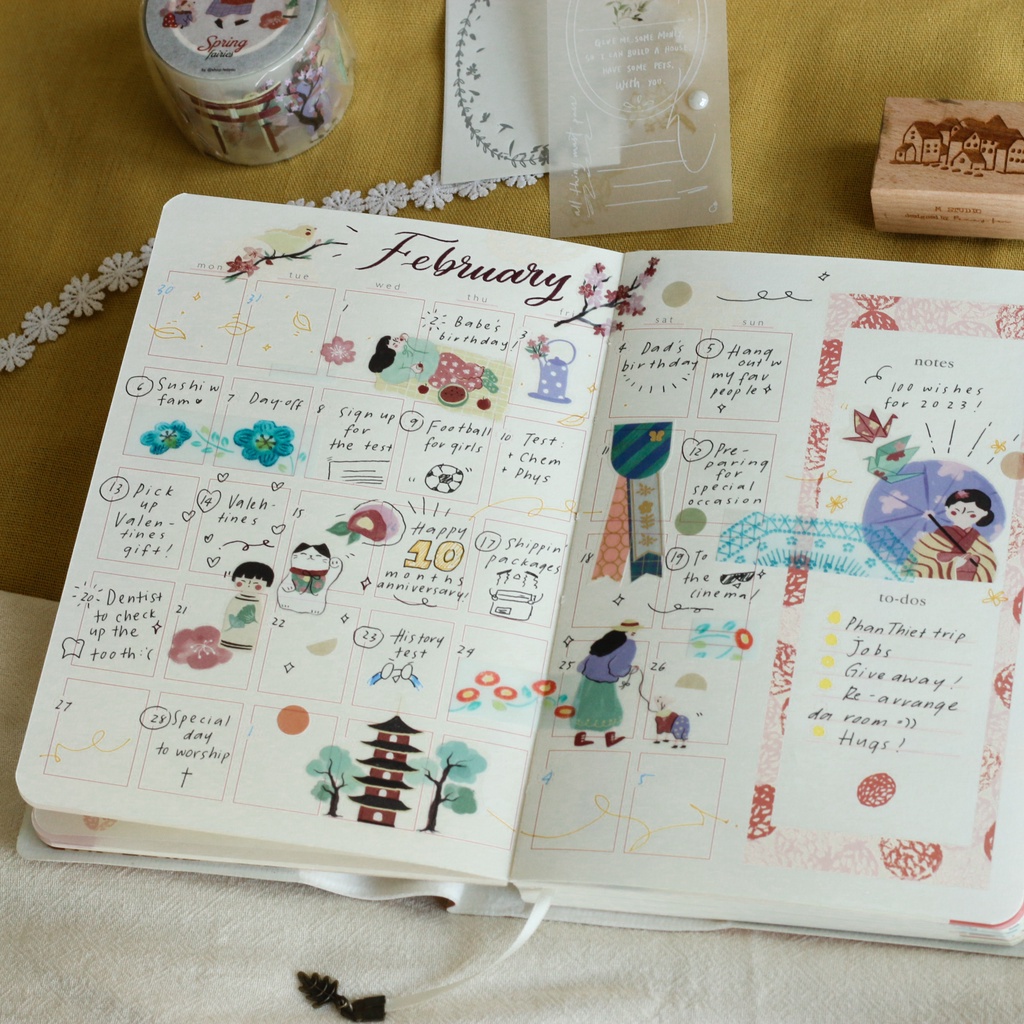 Spring
fairies
GIVE ME SOME MONEY,
SO I CAN BUILD A HOUSE
HAVE SOME PEER,
WITH YOU.
February
mon
tue
wed
thu
fri
sat
sun
30
31
1
2
Babe's
birthday!
3
4
Dad's
birthday
5
Hang
out w
my fav
people
6
Sushi w
fam
7
Day-off
8
Sign up
for
the test
9
Football
for girls
10
Test:
+ Chem
+ Phys
12
Pre-
paring
for
special
occasion
13
Pick
up
Valen-
tines
gift!
14
Valen-
tines
15
Happy
10
months
anniversary!
17
Shippin'
packages
18
19
To
the
cinema!
20
Dentist
to check
up the
tooth:(
21
22
23
History
test
24
25
26
27
28
Special
day
to worship
1
4
5
notes
100 wishes
for 2023!
to-dos
Phan Thiet trip
Jobs
Give away!
Re-arrange
da room =))
Hugs!